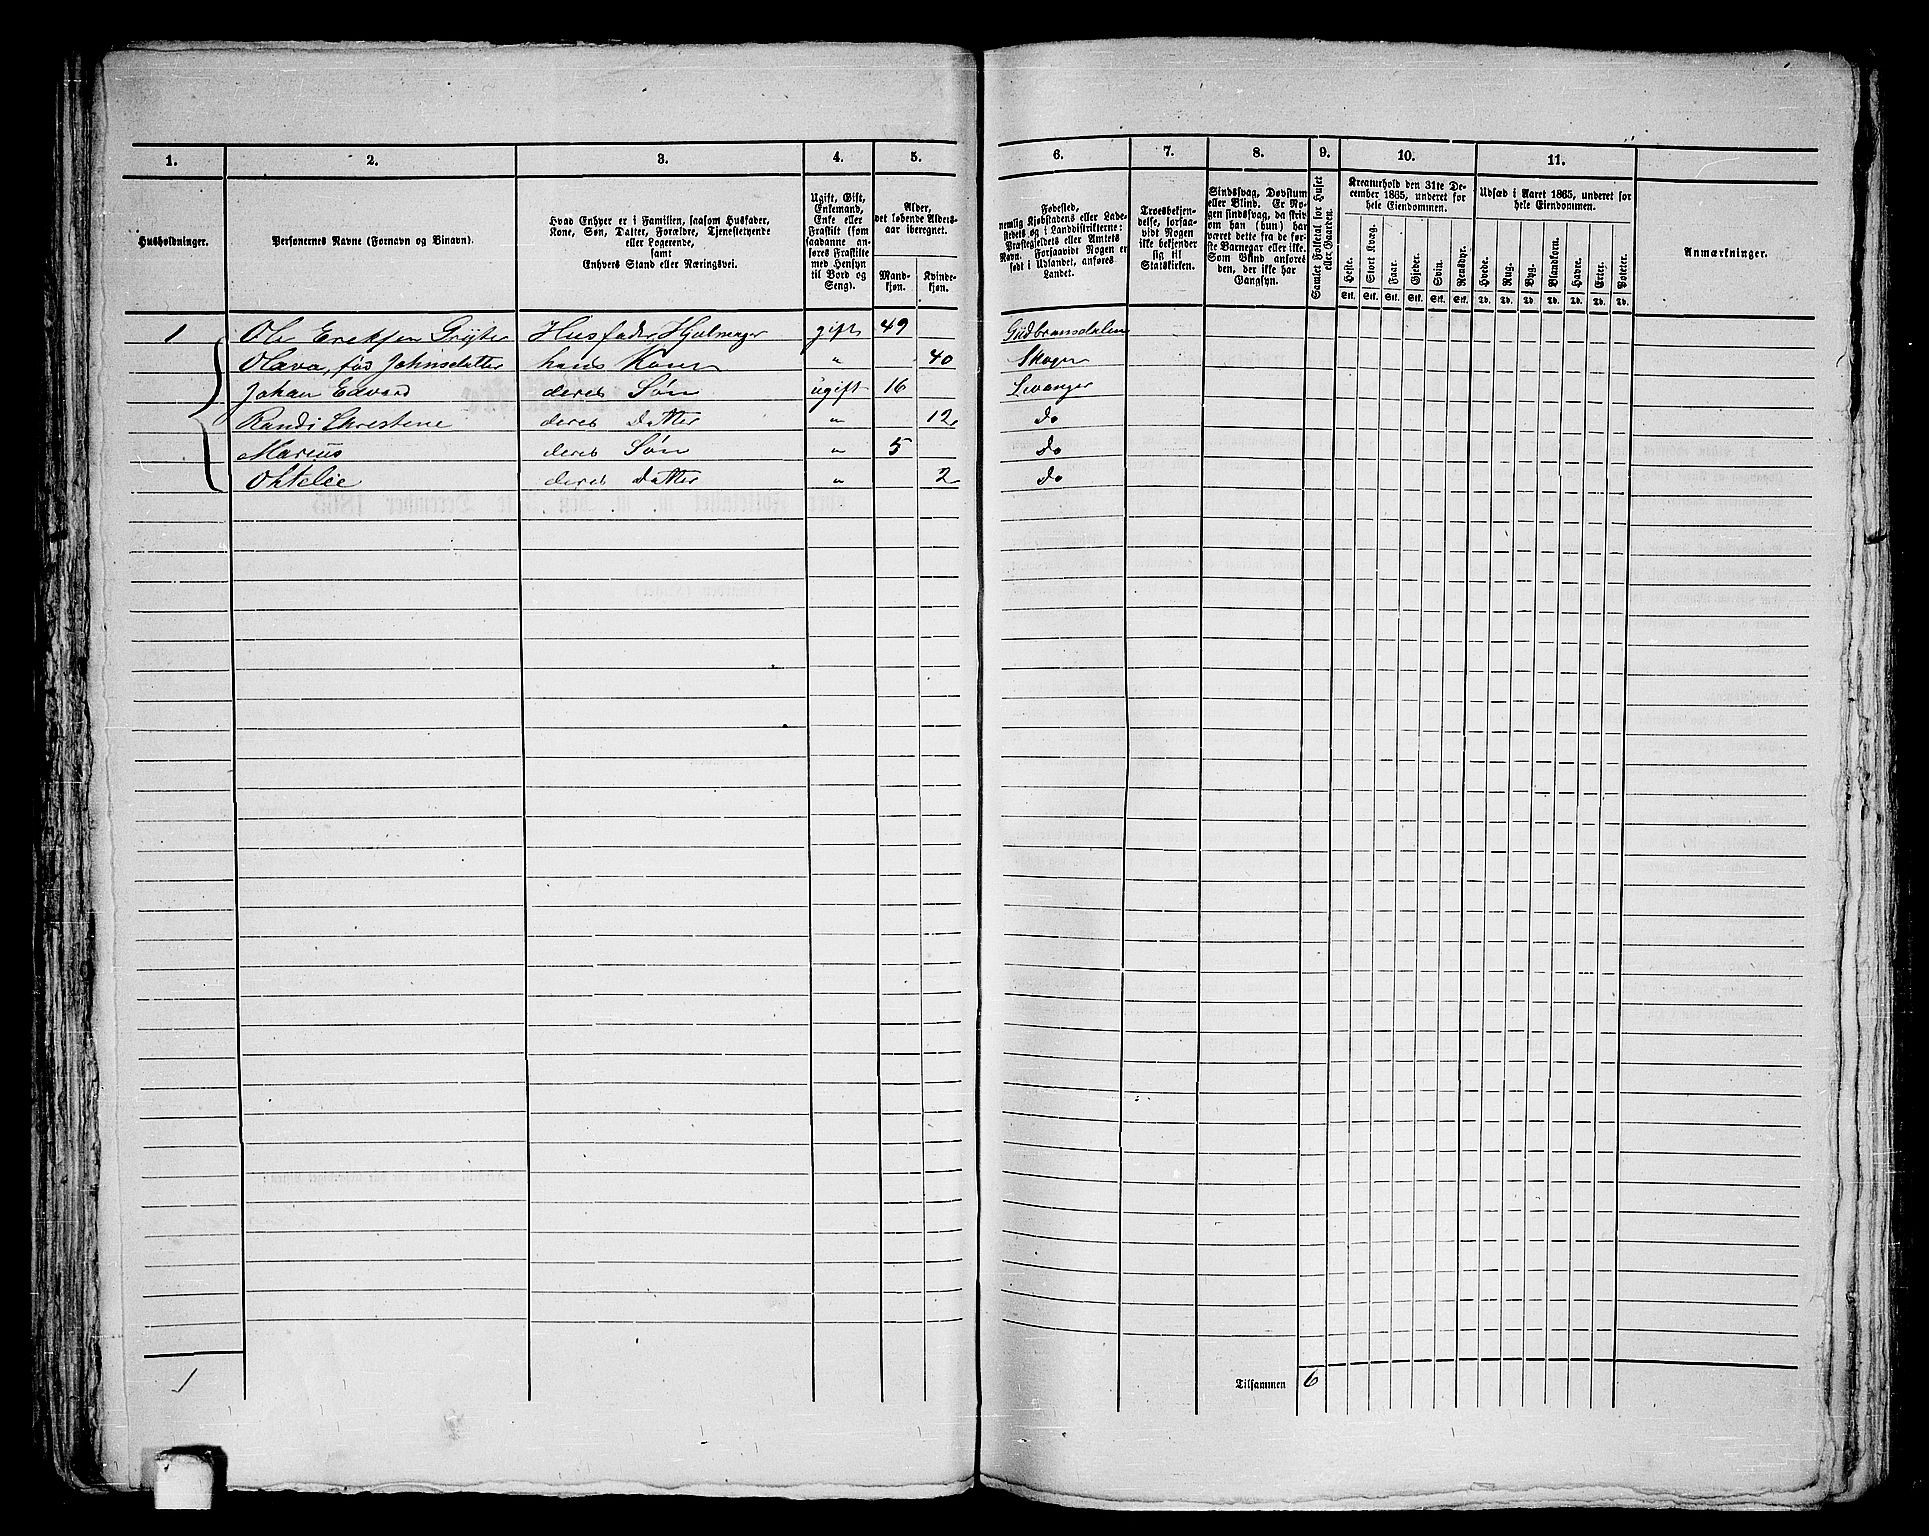 1. 2. 3. 4. 5. 6. 7. 8. 9. 10. 11.
Husholdninger.
Personernes Navne (Fornavn og Binavn).
Hvad Enhver er i Familien, saasom Husfader, Kone, Søn, Datter, Forældre, Tjenestetyende eller Logerende, samt Enhvers Stand eller Næringsvei.
Ugift, Gift, Enkemand, Enke eller Fraskilt (som saadanne anføres Fraskilte med Hensyn til Bord og Seng).
Alder, det løbende Aldersaar iberegnet.
Mandkjøn. Kvindekjøn.
Fødested, nemlig Kjøbstadens eller Ladestedets og i Landdistrikterne: Præstegjeldets eller Amtets Navn. Forsaavidt Nogen er født i Udlandet, anføres Landet.
Troesbekjendelse, forsaavidt Nogen ikke bekjender sig til Statskirken.
Sindssvag, Døvstum eller Blind. Er Nogen sindssvag, da skrives om han (hun) har været dette fra de første Barneaar eller ikke. Som Blind anføres den, der ikke har Gangsyn.
Samlet Folketal for Huset eller Gaarden.
Kreaturhold den 31te December 1865, underet for hele Eiendommen.
Heste. Stort Kvæg. Faar. Gjeder. Svin. Rensdyr.
Stk. Stk. Stk. Stk. Stk. Stk.
Udsæd i Aaret 1865, underet for hele Eiendommen.
Hvede. Rug. Byg. Blandkorn. Havre. Erter. Poteter.
Td. Td. Td. Td. Td. Td. Td.
Anmærkninger.
1 Ole Eriksen Husfader, gift 49 Gudbransdalen
Olava, fød Johnsdatter hans Kone " 40 Skogn
Johan Edvard deres Søn ugift 16 Levanger
Randi Christene deres Datter " 12 do
Marius deres Søn " 5 do
deres Datter " 2 do
1
Tilsammen 6